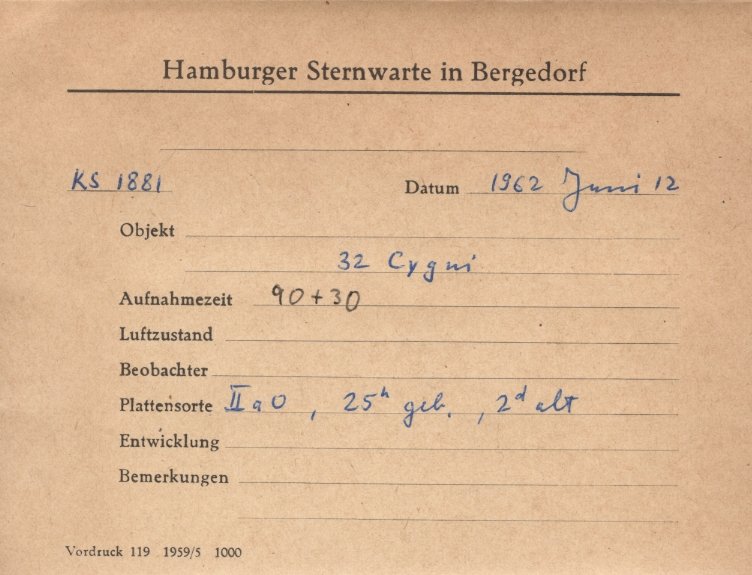 Hamburger Sternwarte in Bergedorf
KS 1881 Datum 1962 Juni 12
Objekt
32 Cygni
Aufnahmezeit 90+30
Luftzustand
Beobachter
Plattensorte IIaO, 25h geb., 2d alt
Entwicklung
Bemerkungen
Vordruck 119 1959/5 1000